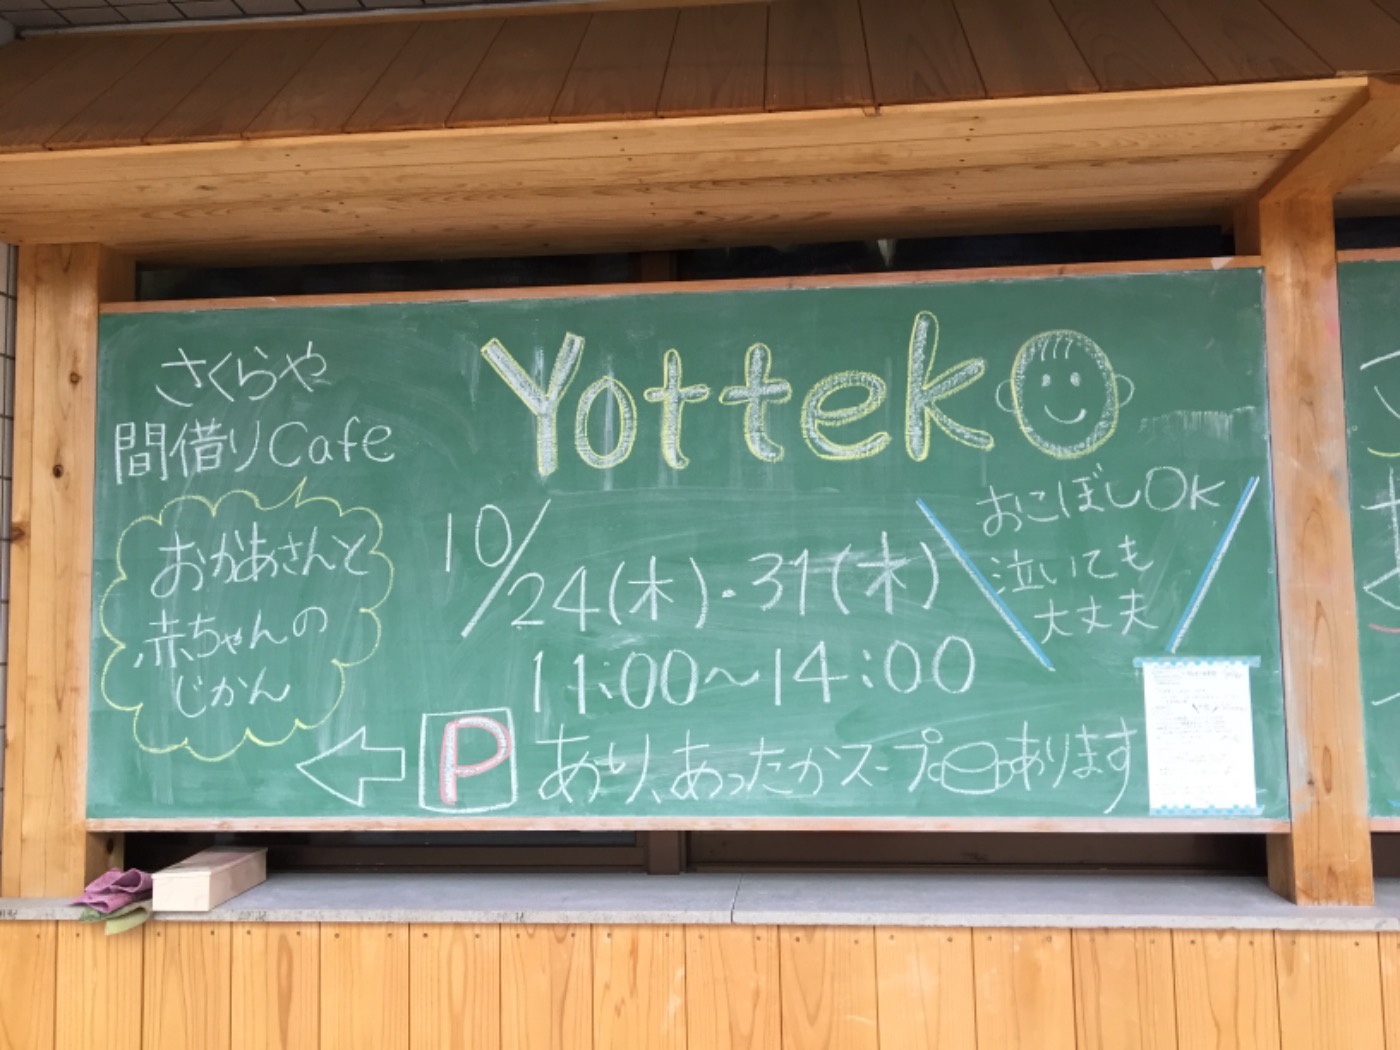 さくらや
間借りCafe
おかあさんと
赤ちゃんの
じかん
Yottek
10/24(木)・31(木)
11:00～14:00
おこぼしOK
泣いても
大丈夫
P あり、あったかスープあります